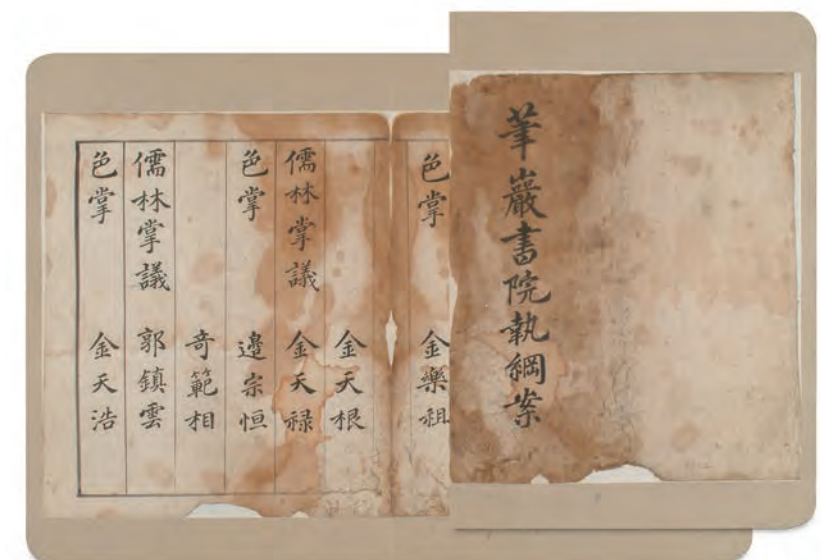 筆巖書院執綱案
色掌 金樂祖
金天根
儒林掌議 金天禄
色掌 邊宗恒
竒範相
儒林掌議 郭鎮雲
色掌 金天浩